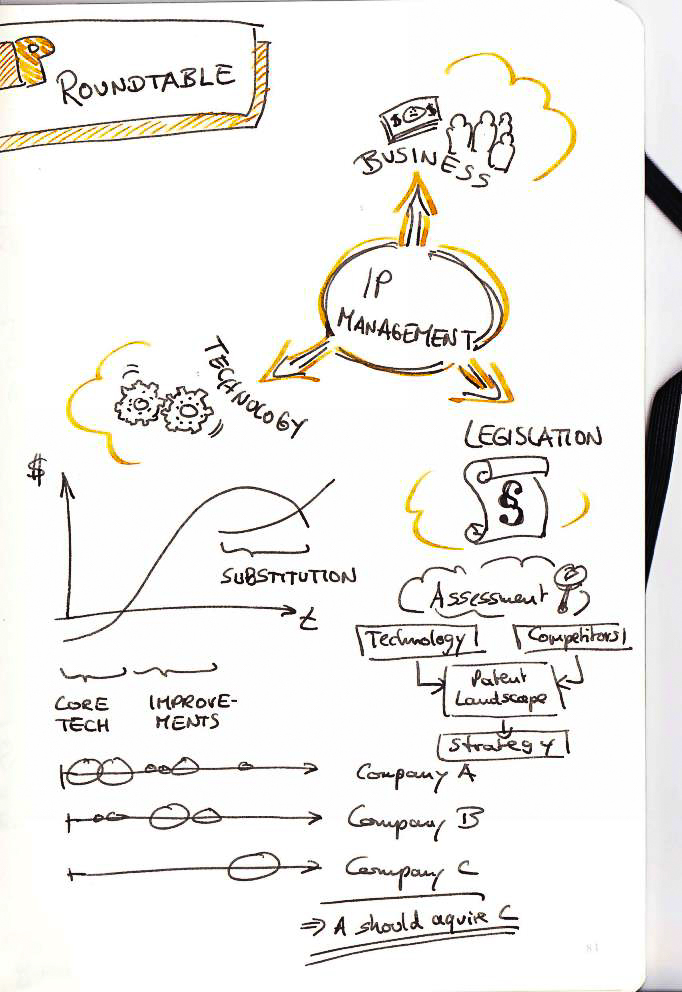 ROUNDTABLE
$ $
BUSINESS
IP
MANAGEMENT
TECHNOLOGY
LEGISLATION
§
$
SUBSTITUTION
t
Assessment
Technology
Competitors
Patent
Landscape
Strategy
CORE
TECH
IMPROVE-
MENTS
Company A
Company B
Company C
⇒ A should aquire C
81